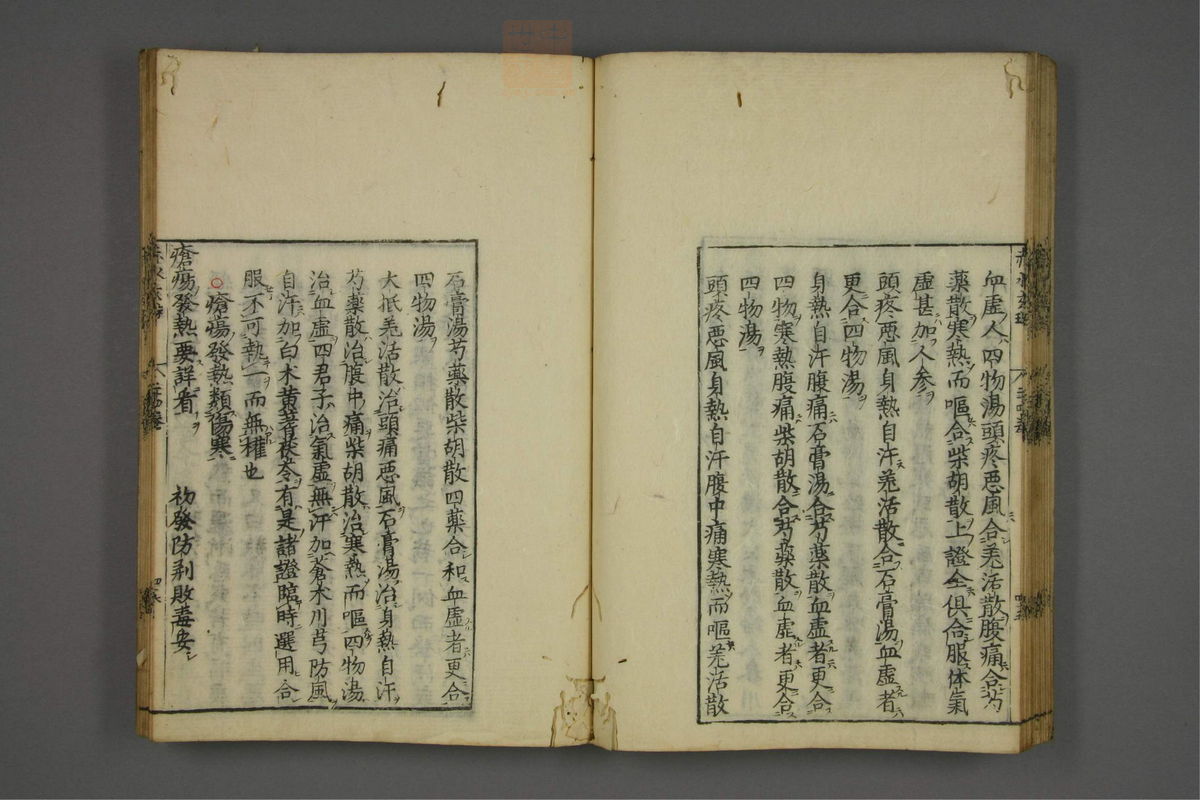 血虛人四物湯頭疼惡風合羌活散腹痛合芍
藥散寒熱而嘔合柴胡散上證全俱合服体氣
虛甚加人參
頭疼惡風身熱自汗羌活散合石膏湯血虛者
更合四物湯
身熱自汗腹痛石膏湯合芍藥散血虛者更合
四物寒熱腹痛柴胡散合芍藥散血虛者更合
四物湯
頭疼惡風身熱自汗腹中痛寒熱而嘔羌活散
石膏湯芍藥散柴胡散四藥合和血虛者更合
四物湯
大抵羌活散治頭痛惡風石膏湯治身熱自汗
芍藥散治腹中痛柴胡散治寒熱而嘔四物湯
治血虛四君子治氣虛無汗加蒼朮川芎防風
自汗加白朮黄芪茯苓有是諸證臨時選用合
服不可執一而無權也
○瘡瘍發熱類傷寒
瘡瘍發熱要詳看 初發防荊敗毒安